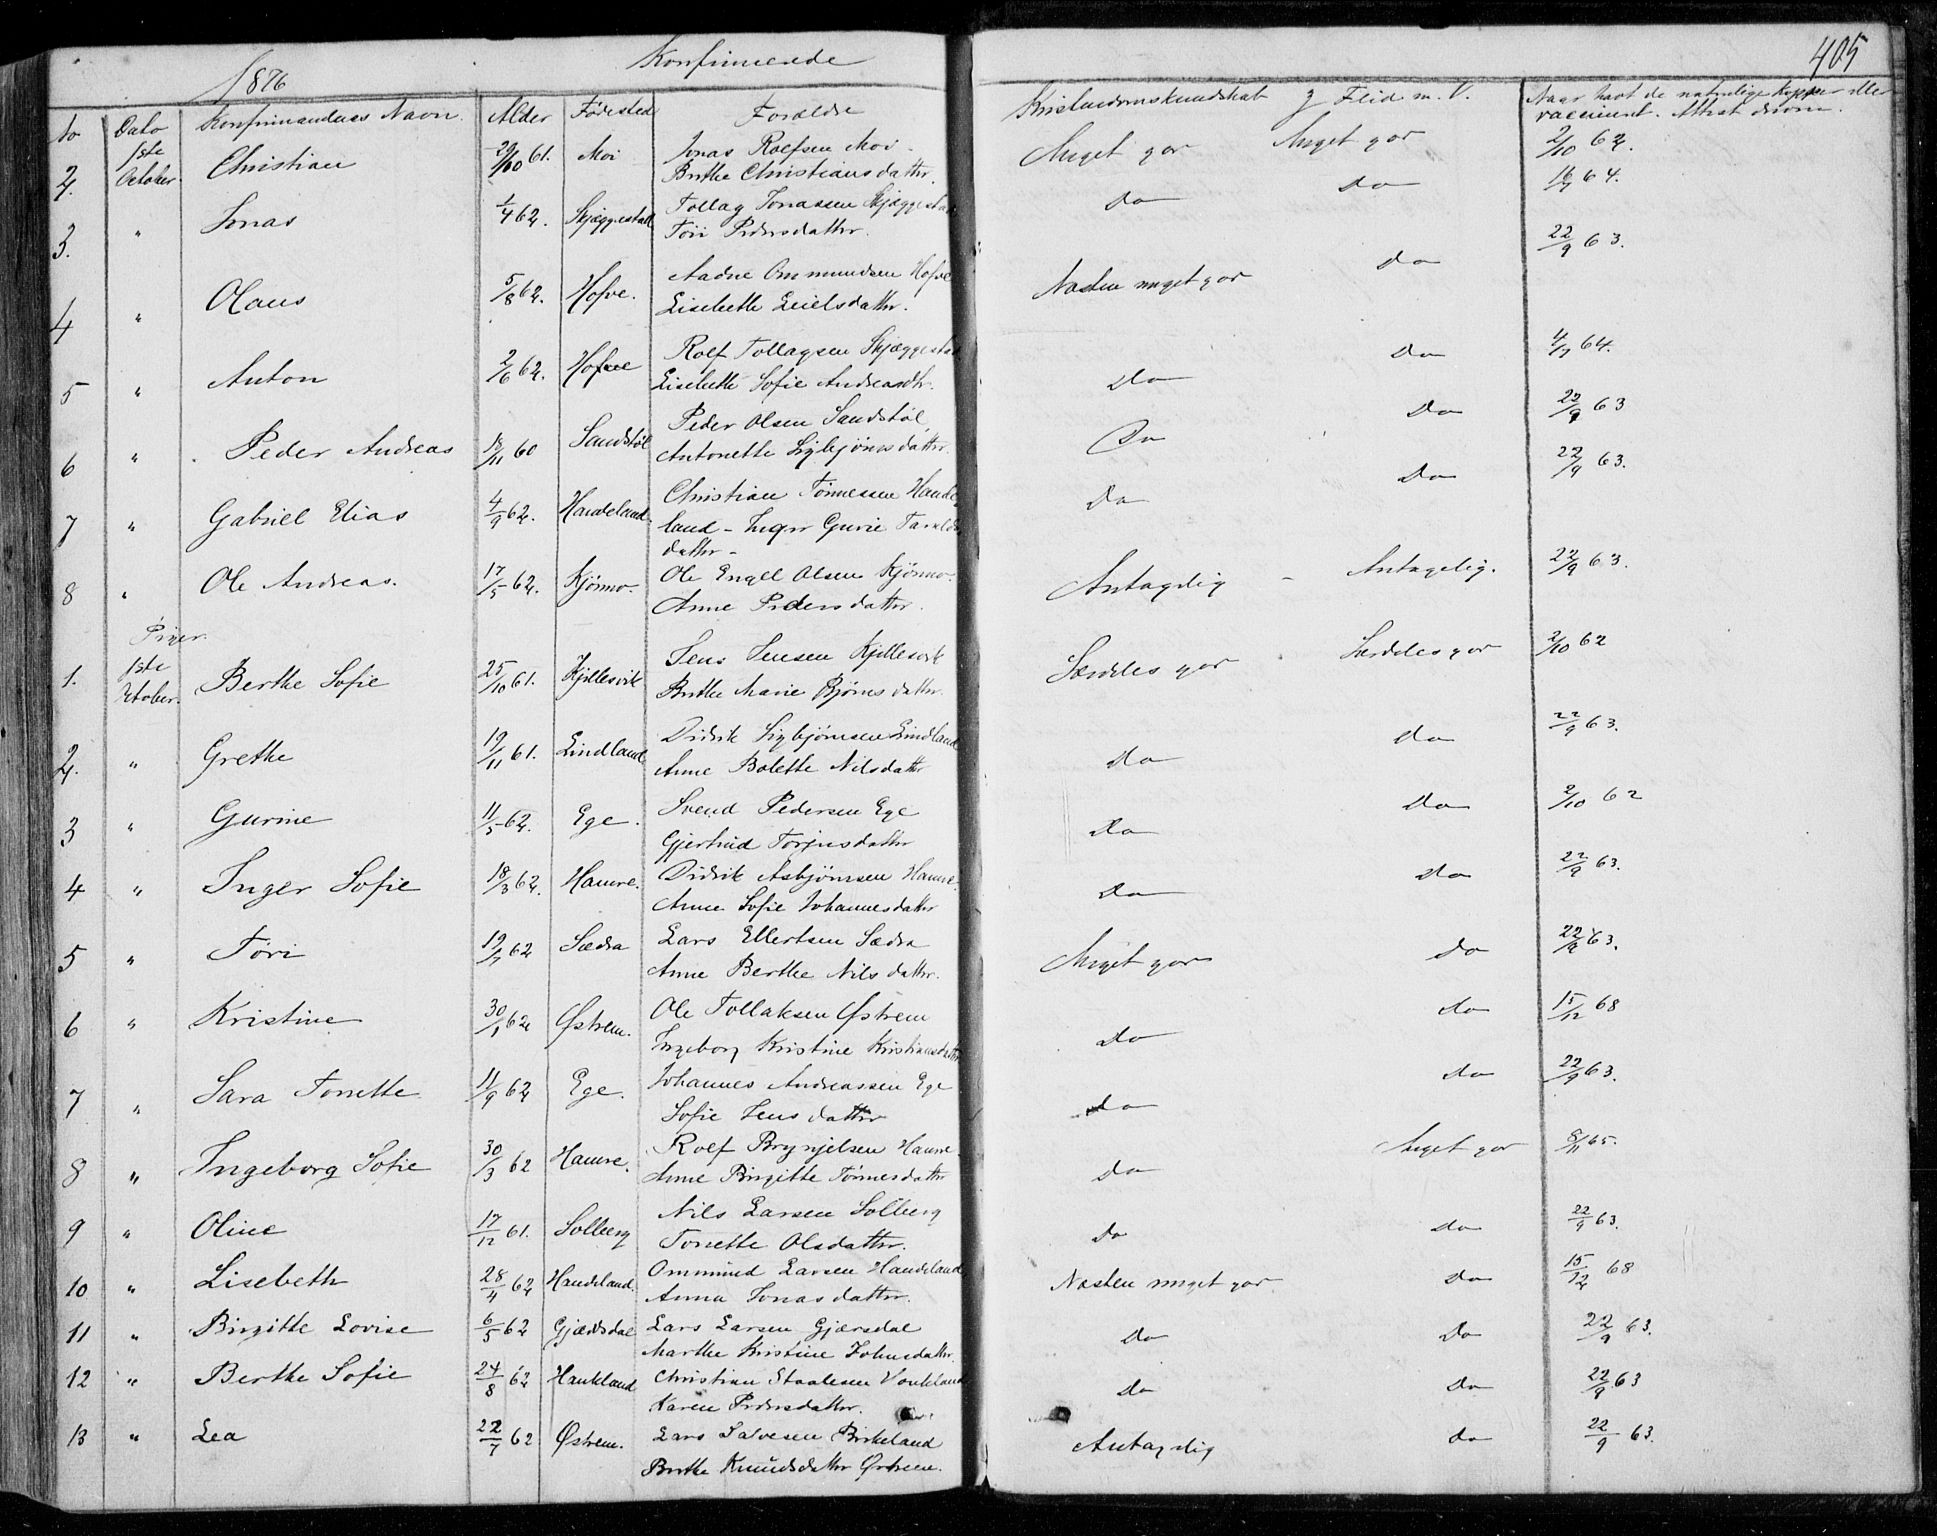 1876 Konfirmerede 405
No Dato Konfirmandens Navn. Alder Fødested Forældre Kristendomskundskab Flid m. V. Naar havt de naturlige Kopper eller
vaccineret. Attest derom.
2. 1ste October. Christian 29/10 61. Moi Jonas Rolfsen Moi - Meget god Meget god 2/10 62.
Berthe Christiansdatter.
3. " Jonas 1/4 62. Skjæggestad Tollag Jonassen Skjæggestad Do Do 64.
Töri Pedersdatter.
4 " Olaus 5/8 62. Hofve. Aadne Ommundsen Hofve Næsten meget god Do 22/9 63.
Lisebeth Leielsdatter.
5 " Anton 2/6 62. Hofve Rolf Tollagsen Skjæggestad Do Do 4/7 64.
Lisebeth Sofie Andreasdtr.
6 " Peder Andreas 18/11 60 Sandstöl Peder Olsen Sandstöl, Do Do 22/9 63
Antonette Sigbjörnsdatter.
7 " Gabriel Elias 4/9 62. Haudeland. Christian Tönnessen Haude Do Do 22/9 63.
land - Inger Gurie Taralds
datter -
8 " Ole Andreas. 17/5 62. Kjönno. Ole Engel Olsen Kjönno. Antagelig - Antagelig. 22/9 63.
Anne Pedersdatter.
Piger.
1. 1ste October. Berthe Sofie 25/10 61. Kjellesvik Jens Jensen Kjellesvik Særdeles god Særdeles god 2/10 62
Berthe Marie Bjørnsdatter.
2. " Grethe 19/11 61. Lindland Didrik Sigbjörnsen Lindland Do Do 22/9 63.
Anne Bolette Nilsdatter
3 " Gurine 11/5 62. Ege. Svend Pedersen Ege Do Do 2/10 62
Gjertrud Torjusdatter
4 " Inger Sofie 18/3 62. Hamre. Didrik Asbjörnsen Hamre. Do Do 22/9 63.
Anne Sofie Johannesdatter
5 " Töri 19/7 62 Sædra Lars Ellertsen Sædra Meget god Do 22/9 63.
Anne Berthe Nilsdatter.
6 " Kristine 30/1 62 Østrem. Ole Tollaksen Østrem Do Do 15/12 68
Ingeborg Kristine Kristiansdatter
7 " Sara Tonette 11/9 62 Ege. Johannes Andreassen Ege Do Do 22/9 63.
Sofie Jensdatter
8 " Ingeborg Sofie 30/3 62 Hamre. Rolf Brynjelsen Hamre Do Meget god 8/11 65.
Anne Birgitte Tönnesdatter
9 " Oline 17/12 61. Solberg Nils Larsen Solberg Do Do 22/9 63.
Tonette Olsdatter.
10 " Lisebeth 28/4 62 Haudeland. Ommund Larsen Haudeland Næsten meget god. Do 15/12 68
Anna Jonasdatter.
11 " Birgitte Lovise 6/5 62 Gjærsdal Lars Larsen Gjærsdal Do Do 22/9 63.
Marthe Kristine Johnsdatter.
12 " Berthe Sofie 24/8 62 Haukland Christian Staalesen Haukland Do Do 22/9 63
Karen Pedersdatter.
13 " Lea 22/7 62 Østrem. Lars Salvesen Birkeland Antagelig Do 22/9 63.
Berthe Knudsdatter Østrem.